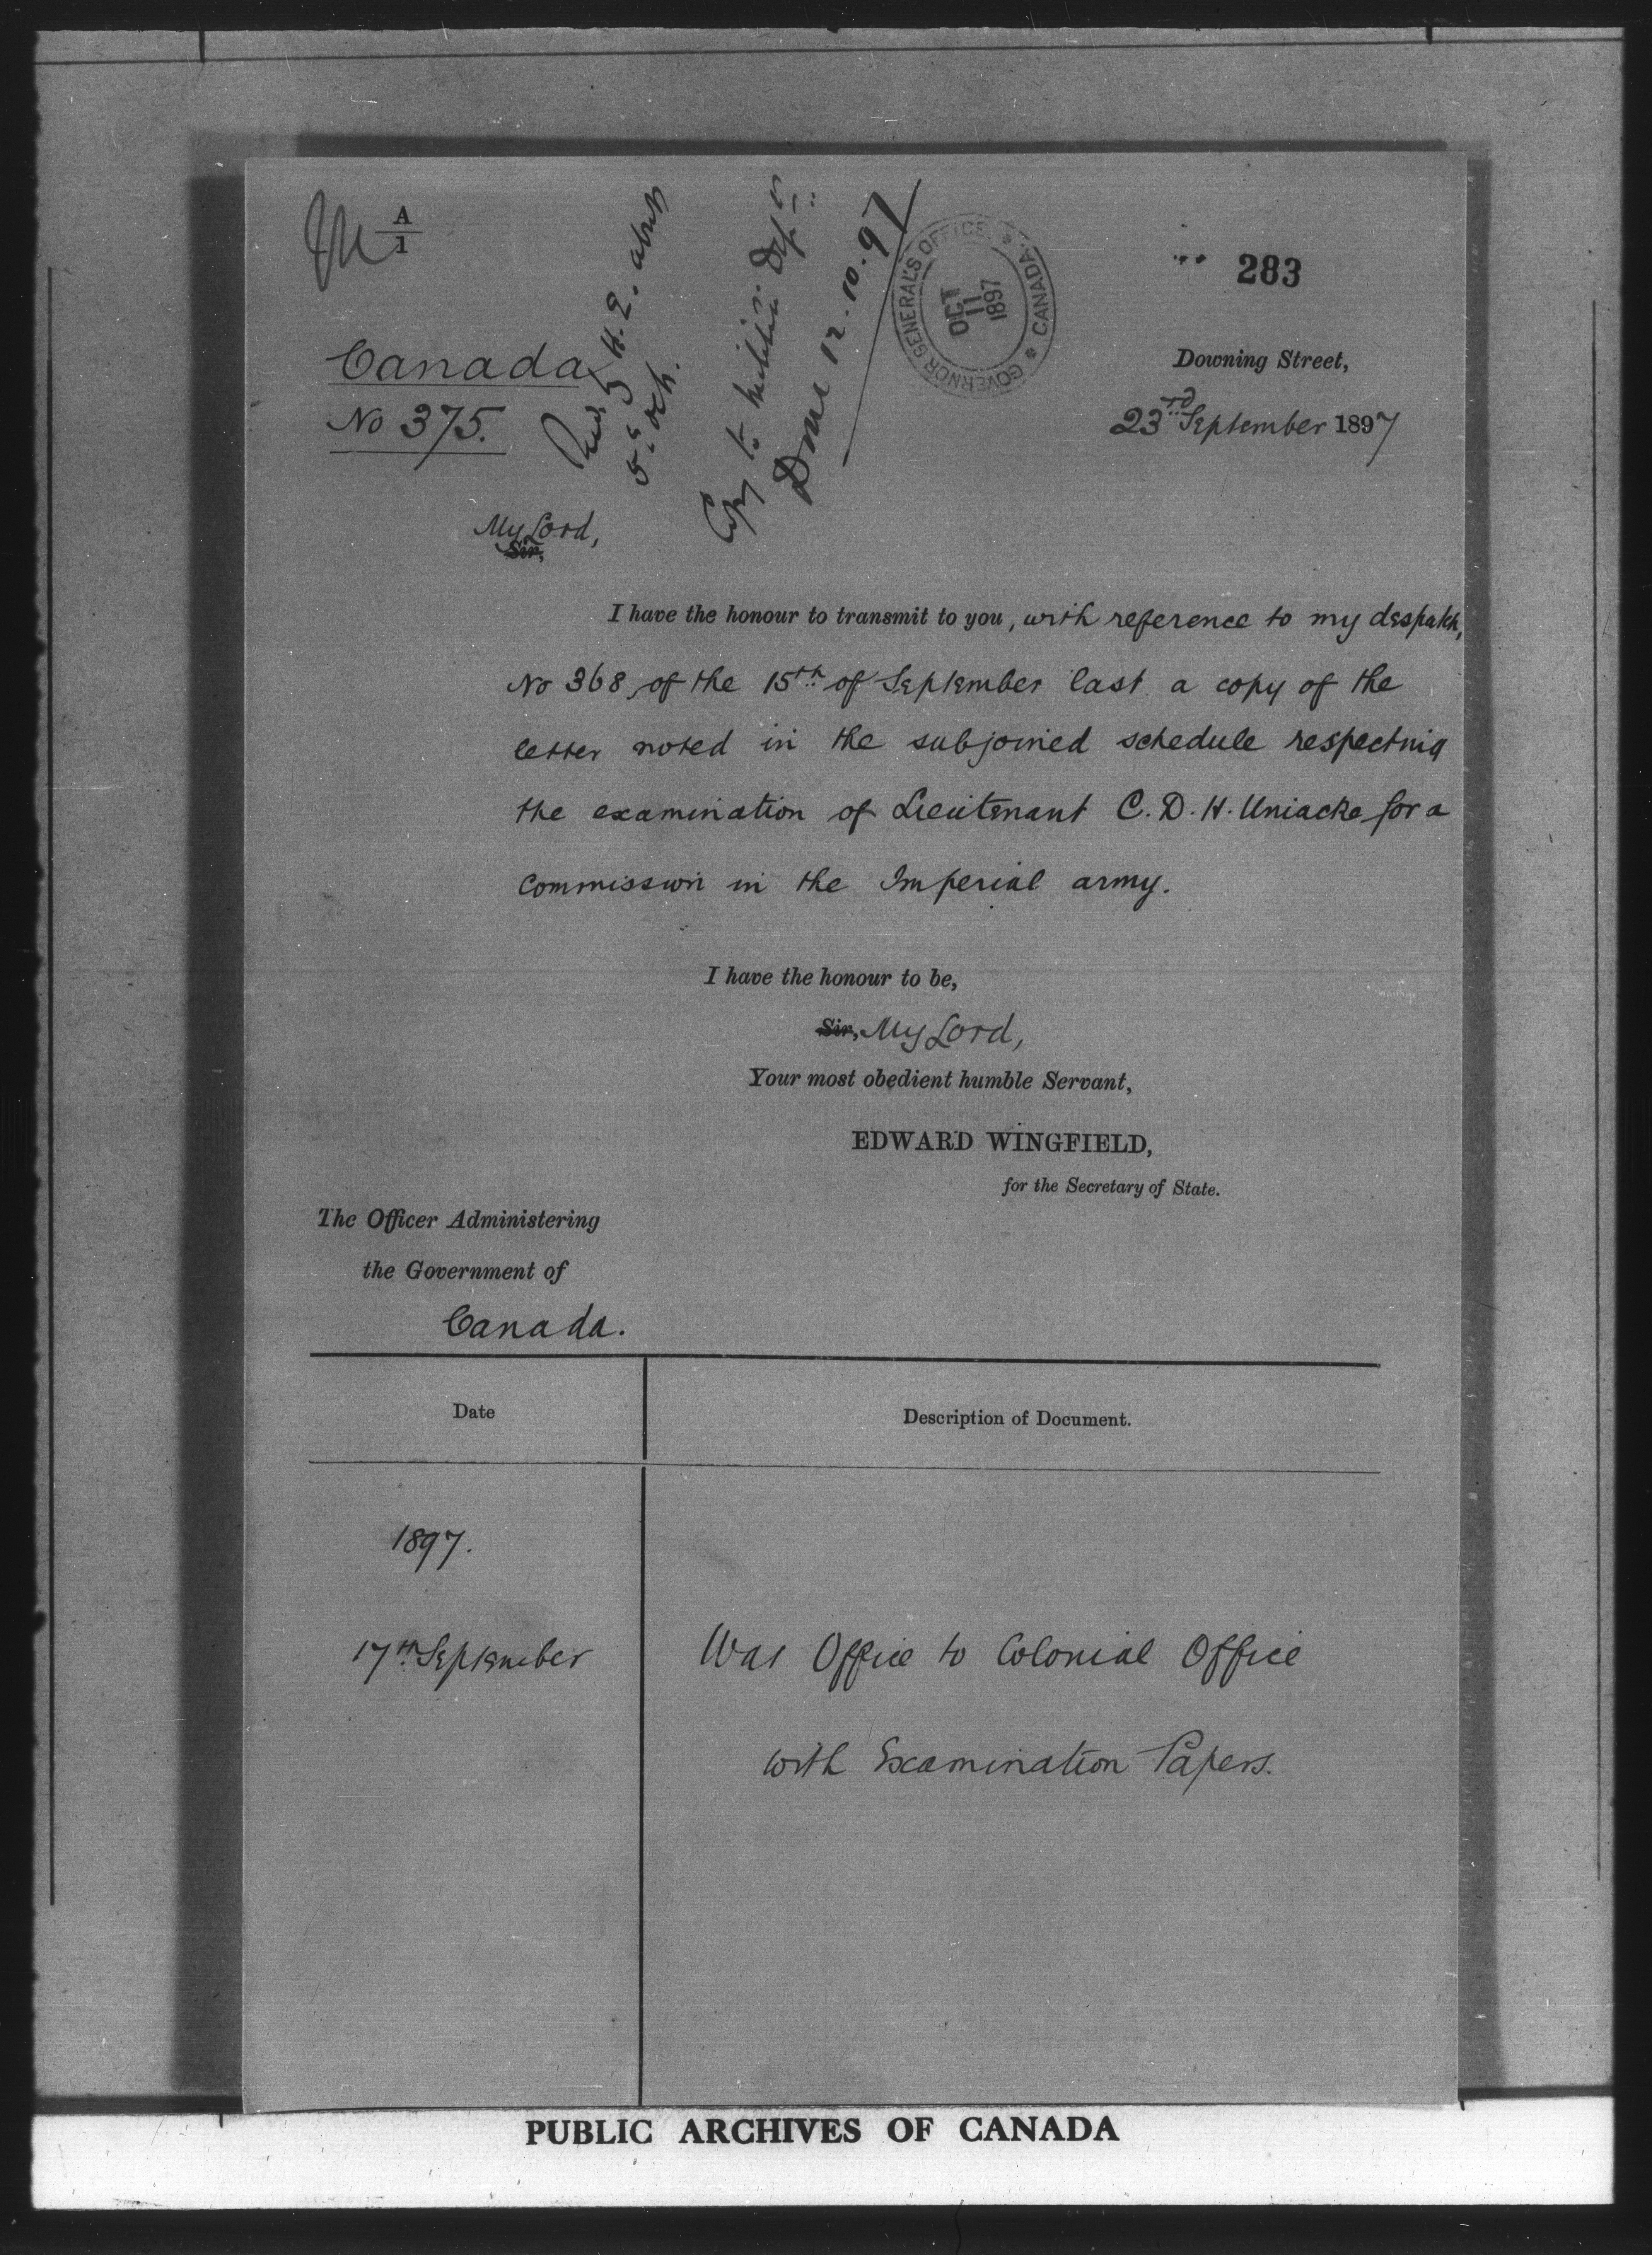 A
1
283
GOVERNOR GENERAL'S OFFICE * CANADA *
OCT
11
1897
Canada
No 375.
H.E.
5 Oct.
Copy to Militia Dept
Done 12.10.97
Downing Street,
23rd September 1897
My Lord,
Sir,
I have the honour to transmit to you, with reference to my despatch,
No 368, of the 15th of September last a copy of the
letter noted in the subjoined schedule respecting
the examination of Lieutenant C. D. H. Uniacke for a
Commission in the Imperial army.
I have the honour to be,
Sir, My Lord,
Your most obedient humble Servant,
EDWARD WINGFIELD,
for the Secretary of State.
The Officer Administering
the Government of
Canada.
Date
Description of Document.
1897.
17th September
War Office to Colonial Office
with Examination Papers.
PUBLIC ARCHIVES OF CANADA